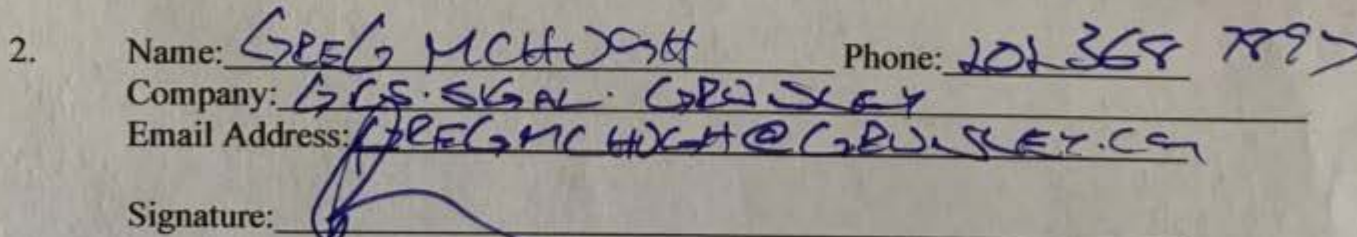 2. Name: GREG MCHUGH Phone: 202 368 7897
Company: GCS. SIGAL. GRUNLEY
Email Address: GREGMCHUGH@GRUNLEY.COM
Signature: